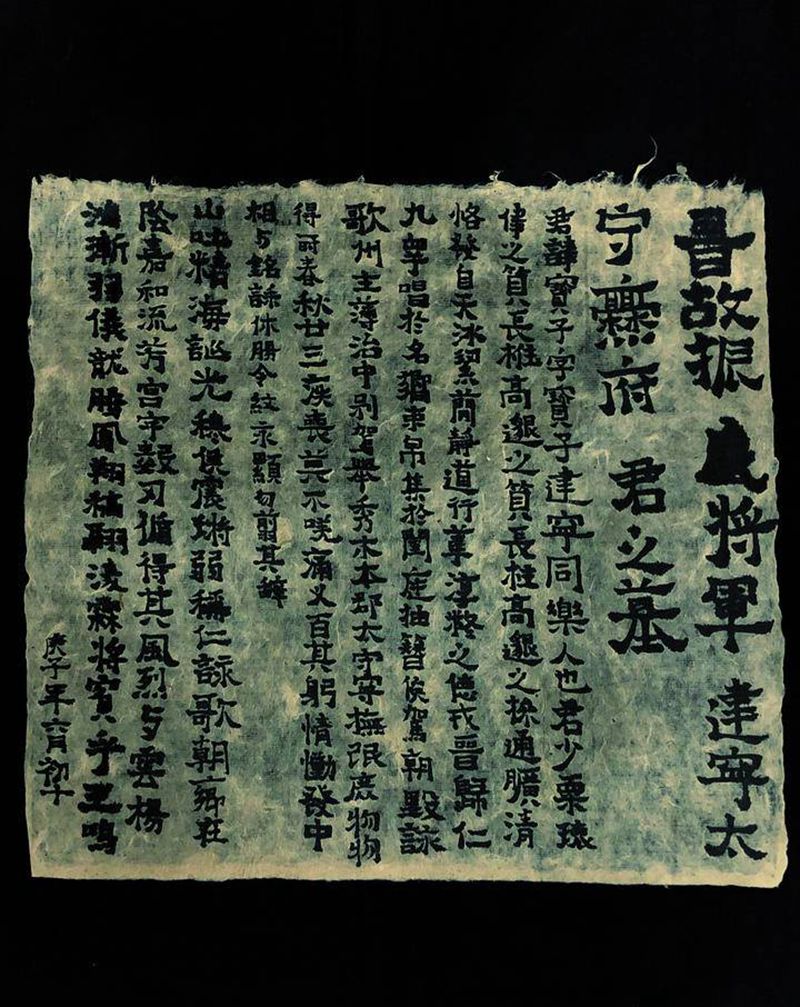 晉故振威將軍建寧太
守爨府君之墓
君諱寶子字寶子建寧同樂人也君少稟瓌
偉之質長挺高邈之質長挺高邈之操通曠清
恪發自天冰絜簡靜道行葦淳粹之德戎晉歸仁
九皋唱於名嚮束帛集於閨庭抽簪俟駕朝野詠
歌州主薄治中別駕舉秀才本郡太守寧撫氓庶物物
得所春秋廿三疾喪莫不嗟痛人百其躬情慟發中
相与銘誄休勝令終永顯勿翦其辭
山吐精海誕光穆侯震弱稱仁詠歌朝鄉在
陰嘉和流芳宮宇數刃循得其風烈与雲揚
鴻漸羽儀龍騰鳳翔矯翮凌霖將賓乎王鳴
庚子年六月初十